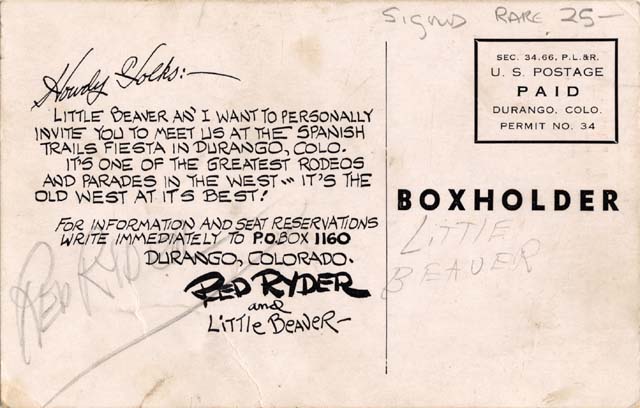 Signed Rare 25-
Howdy Folks:-
Little Beaver an' I want to personally
invite you to meet us at the Spanish
Trails Fiesta in Durango, Colo.
It's one of the greatest rodeos
and parades in the West--- it's the
Old West at its best!
For information and seat reservations
write immediately to P.O. Box 1160
Durango, Colorado.
Red Ryder
and
Little Beaver-
Red Ryder
SEC. 34.66, P.L.&R.
U. S. POSTAGE
PAID
DURANGO, COLO.
PERMIT NO. 34
BOXHOLDER
Little
Beaver